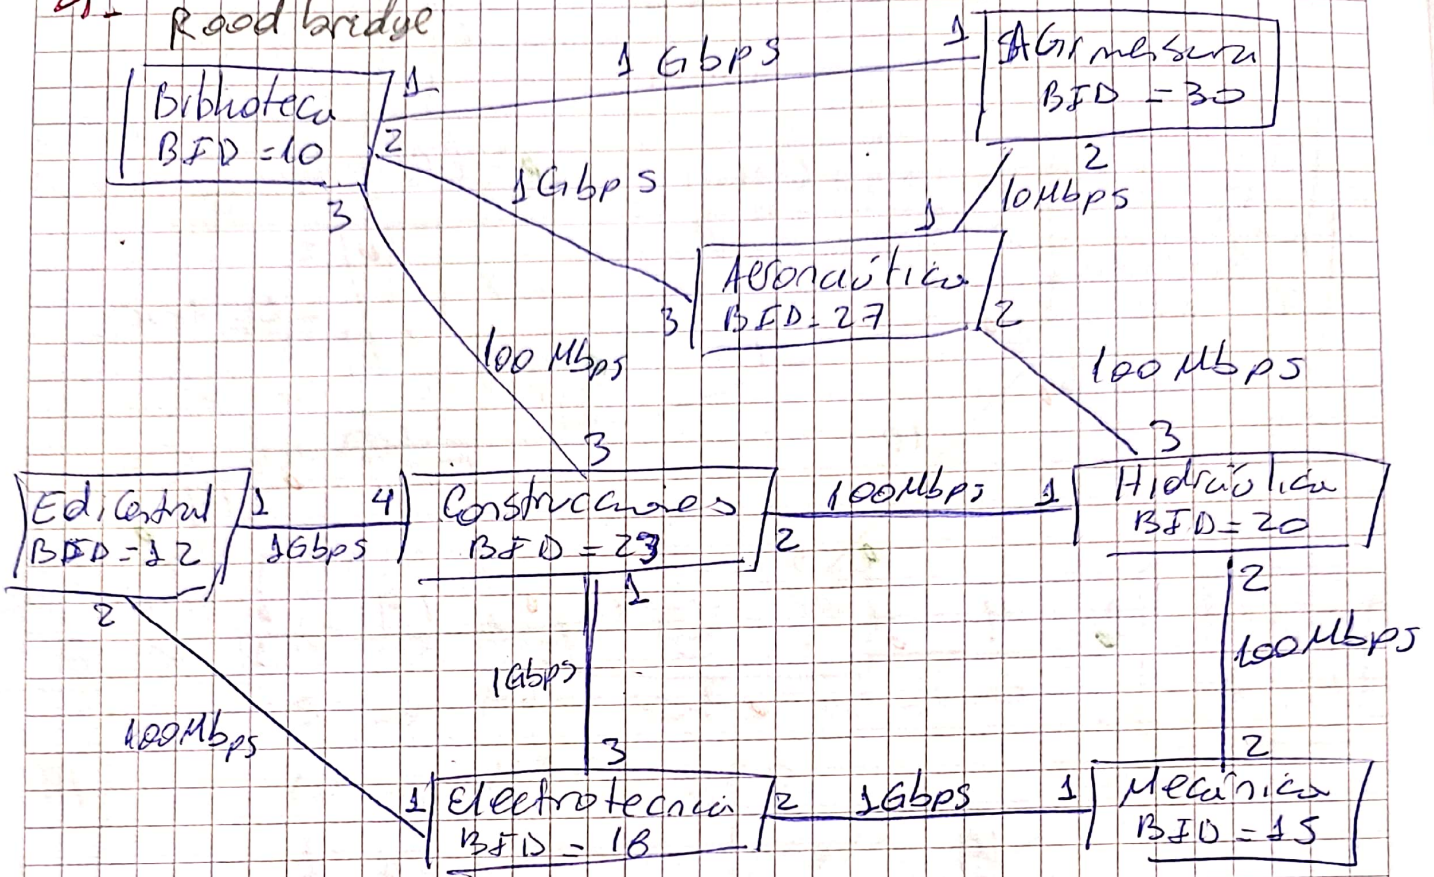 Rood bridge
Biblioteca
BID = 10
1
2
3
1 Gbps
1
BID = 30
2
1Gbps
10Mbps
1
Aeronaútica
BID = 27
3
2
100 Mbps
100 Mbps
3
3
Edi Central
BID = 12
1
4
1Gbps
2
Construcciones
BID = 23
2
1
100Mbps
1
Hidraúlica
BID = 20
2
1Gbps
100Mbps
100Mbps
3
2
1
Electrotecnia
BID = 18
2
1Gbps
1
Mecánica
BID = 15